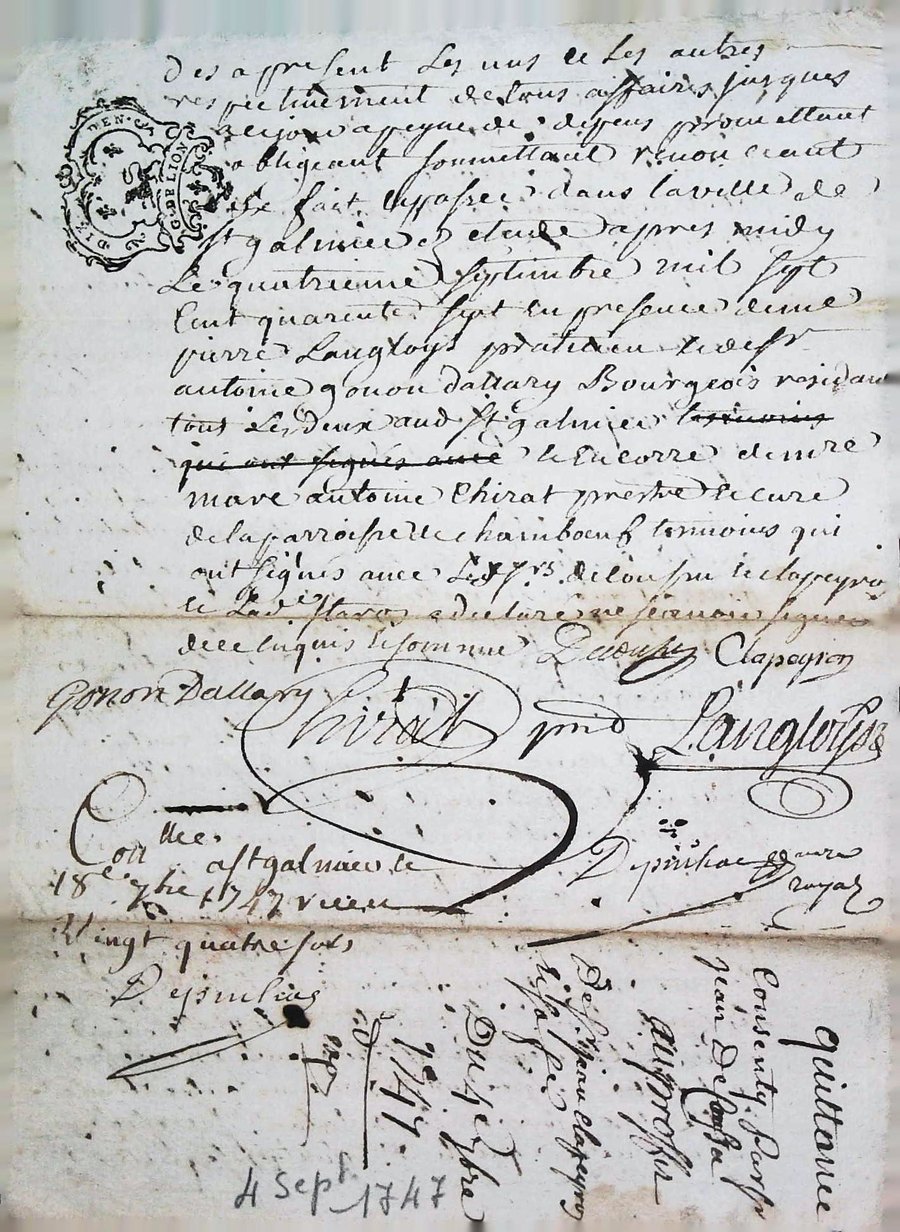 des a present les uns et les autres
respectivement de tous affaires jusques
a ce jour a peyne de depens promettant
obligeant soumettant renonceant
fait et passé dans la ville de
St galmier etude apres midy
Le quatrieme septembre mil sept
Cent quarente sept en presence de me
pierre Langloys praticien et de sr
antoine gonon dallary Bourgeois residant
tous Les deux aud St galmier tesmoins
qui ont signés avec et encorre de mre
marc antoine Chirat prestre et curé
de la parroisse de chambœuf temmoins qui
ont signés avec Led. srs et clapeyron
et Lad. a declaré ne scavoir signer
de ce enquis et sommée Clapeyron
Gonon Dallary Chirat pnt Langloys
Conllée a St galmier le
18e 7bre 1747 receu
Vingt quatre sols
Depinhac
Depinhac notaire
royal
DIX DEN.
G. DE LION
quittance
Consenty par sr
jean
au proffit
de sr jean clapeyron
de St galmier
Du 4e 7bre
1747
4 Sept 1747